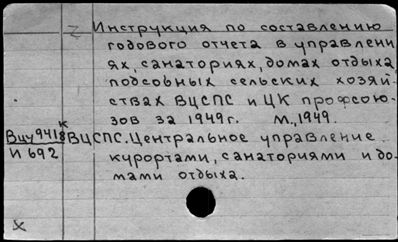 Инструкция по составлению
годового отчета в управлени
ях, санаториях, домах отдыха,
подсобных сельских хозяй-
ствах ВЦСПС и ЦК профсою-
зов за 1949г. М., 1949.
к
ВЦСПС. Центральное управление
И 692
курортами, санаториями и до-
мами отдыха.
x